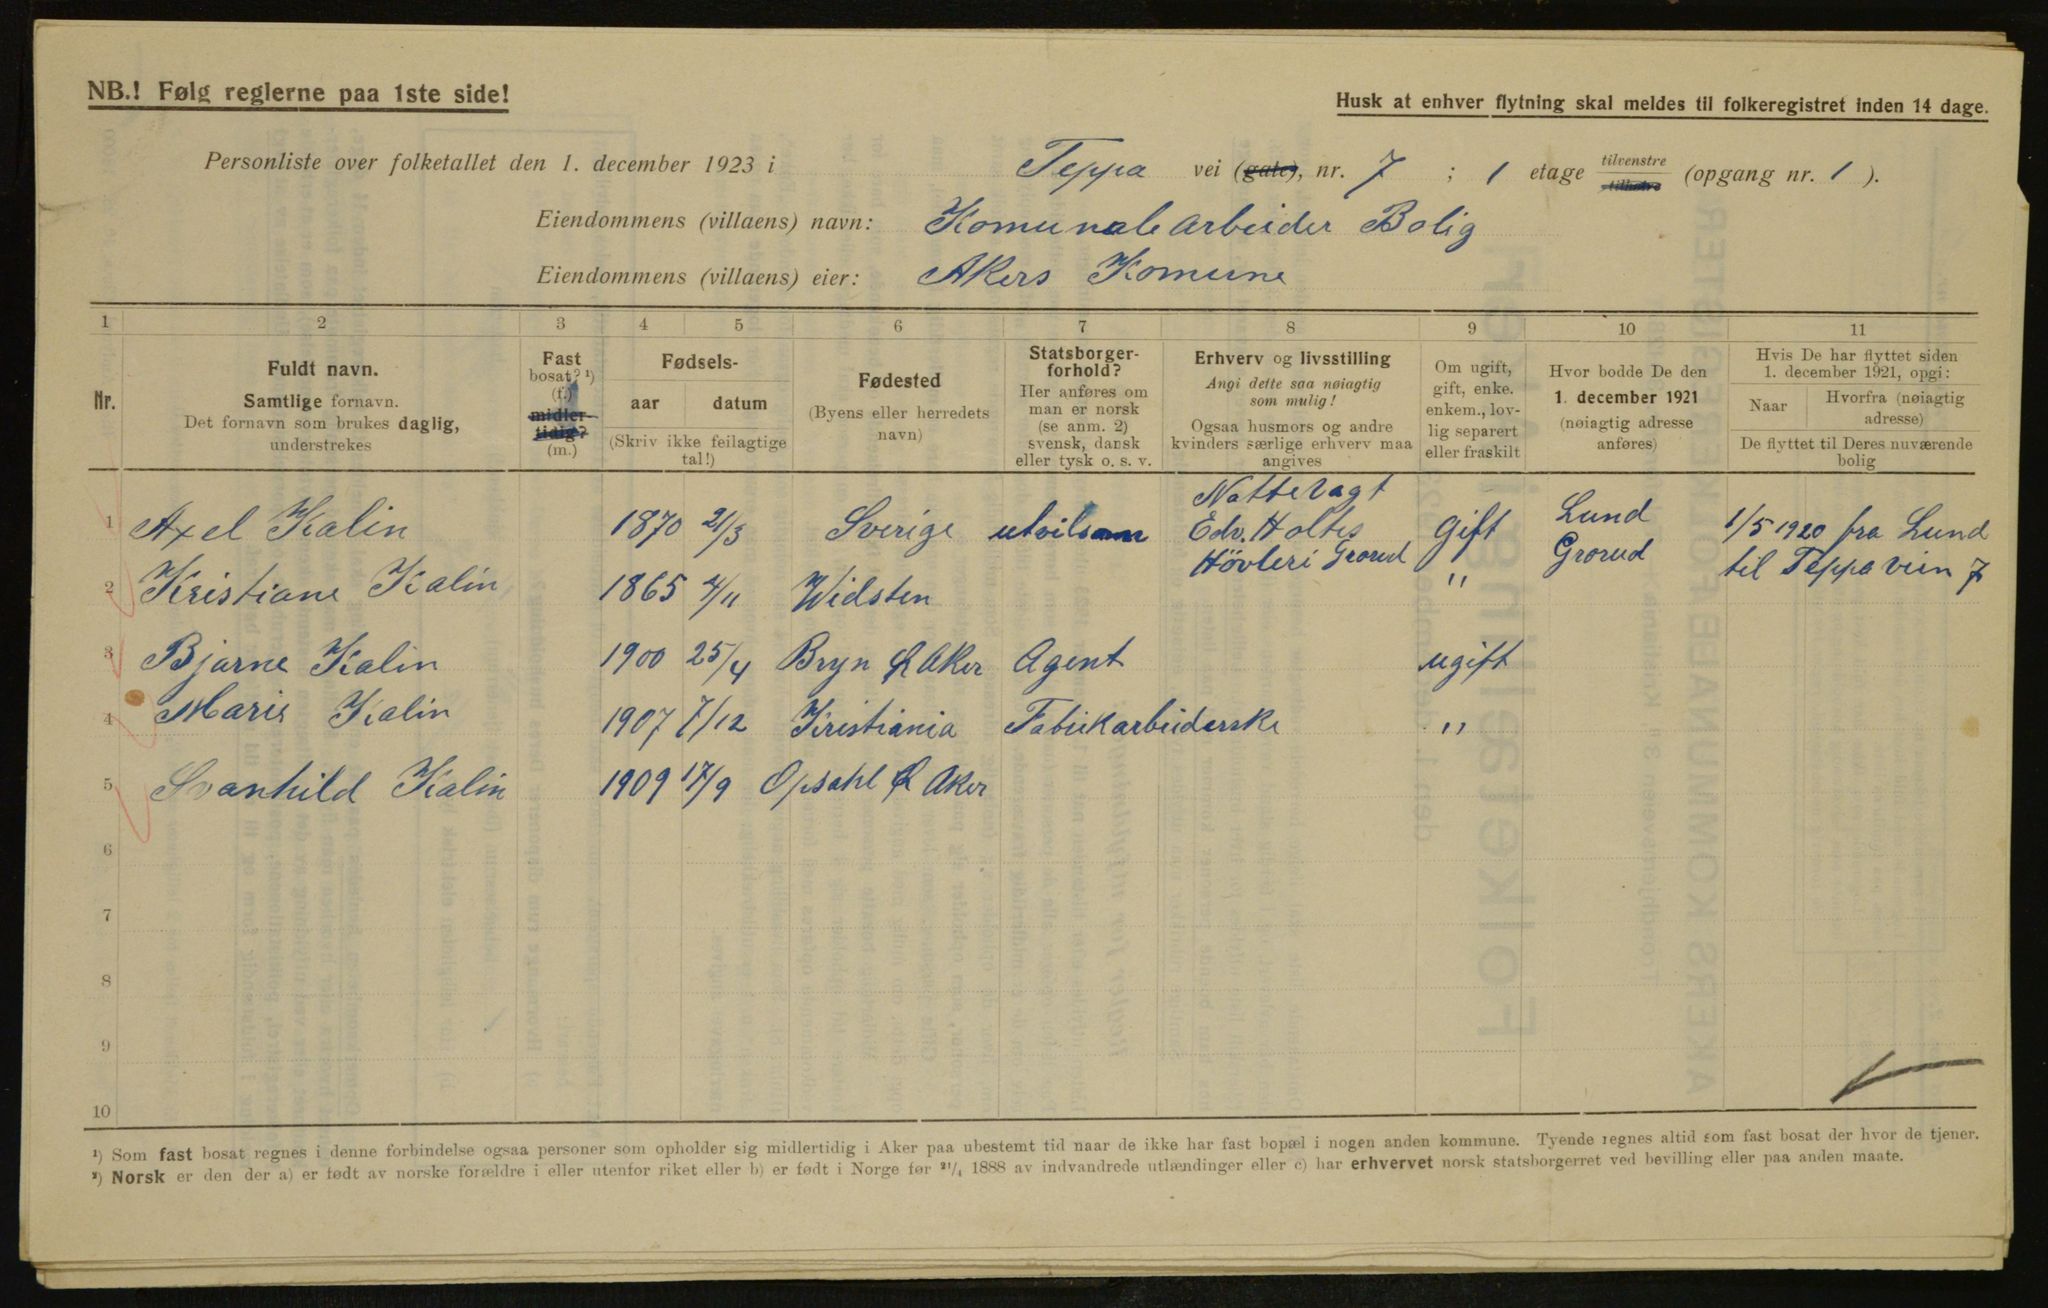 NB.! Følg reglerne paa 1ste side!
Husk at enhver flytning skal meldes til folkeregistret inden 14 dage.
Personliste over folketallet den 1. december 1923 i Teppa vei (gate), nr. 7 ; 1 etage tilvenstre tilhøire (opgang nr. 1 ).
Eiendommens (villaens) navn: Komunalearbeider Bolig
Eiendommens (villaens) eier: Akers Komune
1 2 3 4 5 6 7 8 9 10 11
Nr.
Fuldt navn.
Samtlige fornavn.
Det fornavn som brukes daglig,
understrekes
Fast
bosat? ¹)
(f.)
midler-
tidig?
(m.)
Fødsels-
aar datum
(Skriv ikke feilagtige
tal!)
Fødested
(Byens eller herredets
navn)
Statsborger-
forhold?
Her anføres om
man er norsk
(se anm. 2)
svensk, dansk
eller tysk o. s. v.
Erhverv og livsstilling
Angi dette saa nøiagtig
som mulig!
Ogsaa husmors og andre
kvinders særlige erhverv maa
angives
Om ugift,
gift, enke.
enkem., lov-
lig separert
eller fraskilt
Hvor bodde De den
1. december 1921
(nøiagtig adresse
anføres)
Hvis De har flyttet siden
1. december 1921, opgi:
Naar Hvorfra (nøiagtig
adresse)
De flyttet til Deres nuværende
bolig
Nattevagt
1 Axel Kalin 1870 21/3 Sverige utvilsom Edv. Holtes Gift Lund 1/5 1920 fra Lund
Hövleri Grorud Grorud til Teppa veien 7
2 Kristiane Kalin 1865 4/11 Widsten "
3 Bjarne Kalin 1900 25/4 Bryn Ø Aker Agent ugift
4 Marie Kalin 1907 7/12 Kristiania Fabrikarbeiderske "
5 Svanhild Kalin 1909 17/9 Opsahl Ø Aker
6
7
8
9
10
¹) Som fast bosat regnes i denne forbindelse ogsaa personer som opholder sig midlertidig i Aker paa ubestemt tid naar de ikke har fast bopæl i nogen anden kommune. Tyende regnes altid som fast bosat der hvor de tjener.
²) Norsk er den der a) er født av norske forældre i eller utenfor riket eller b) er født i Norge før ²¹/₄ 1888 av indvandrede utlændinger eller c) har erhvervet norsk statsborgerret ved bevilling eller paa anden maate.